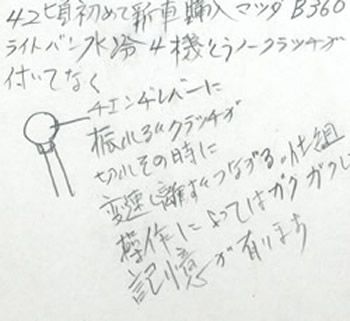 42頃初めて新車購入マツダB360
ライトバン水冷4機とうノークラッチが
付いてなく
チエンヂレバーに
振れるとクラッチが
切れその時に
変速し離すとつながる仕組
操作によってはガクガクし
記憶が有ります